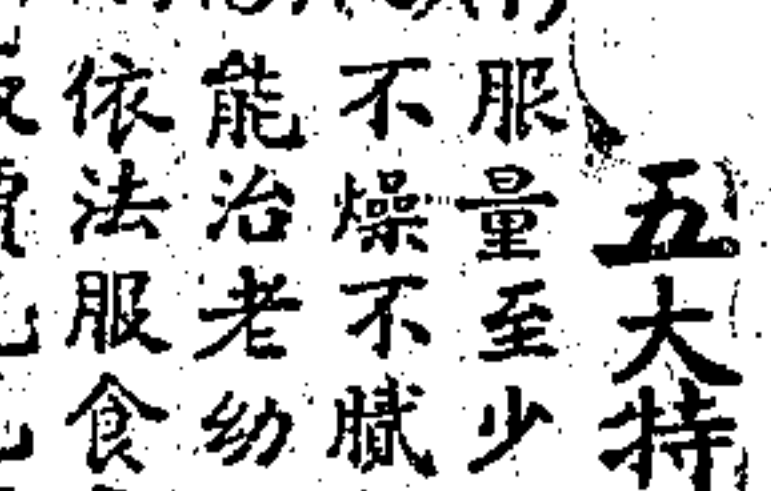 五大特
服量至少
不燥不膩
能治老幼
依法服食